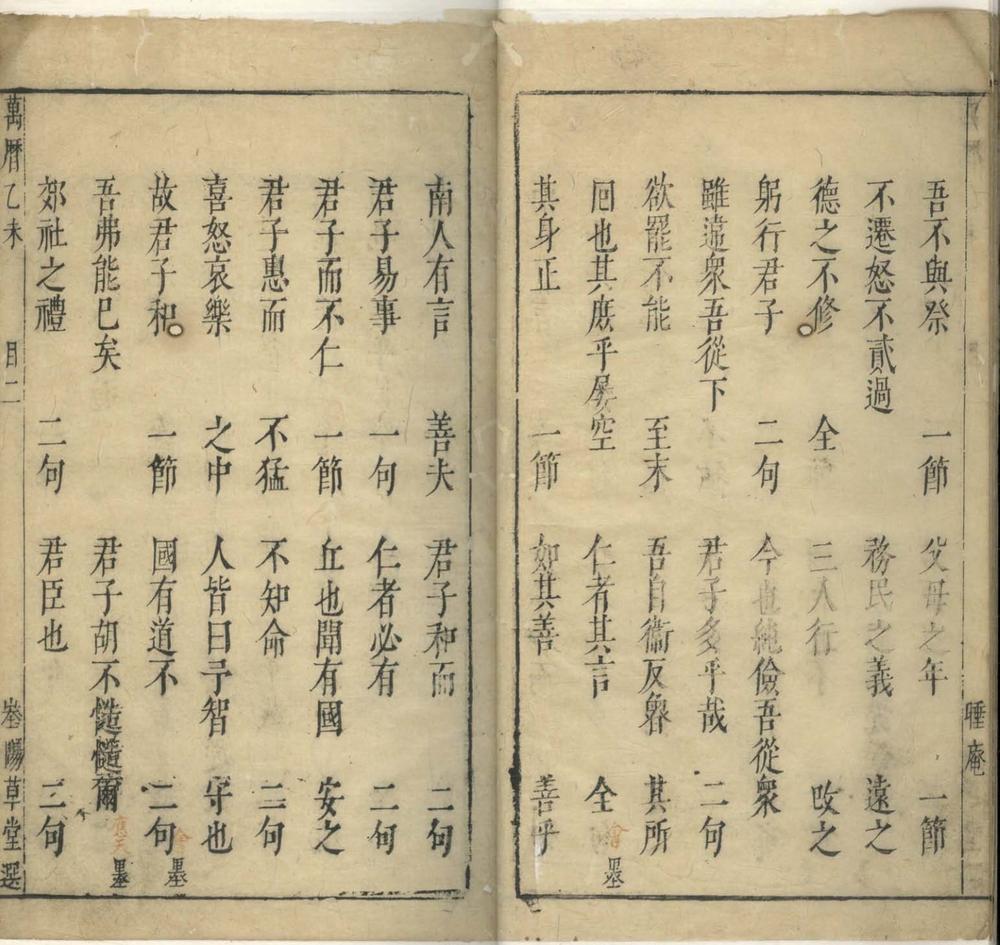 睡庵
吾不與祭 一節 父母之年 一節
不遷怒不貳過 務民之義 遠之
德之不修 全 三人行 改之
躬行君子 二句 今也純儉吾從衆
雖違衆吾從下 君子多乎哉 二句
欲罷不能 至末 吾自衞反魯 其所
回也其庶乎屢空 仁者其言 全 會墨
其身正 一節 如其善 善乎
南人有言 善夫 君子和而 二句
君子易事 一句 仁者必有 二句
君子而不仁 一節 丘也聞有國 安之
君子惠而 不猛 不知命 三句
喜怒哀樂 之中 人皆曰予智 守也
故君子和 一節 國有道不 二句 會墨
吾弗能已矣 君子胡不慥慥爾 應天墨
郊社之禮 二句 君臣也 三句
萬曆乙未 目二 峚陽草堂選